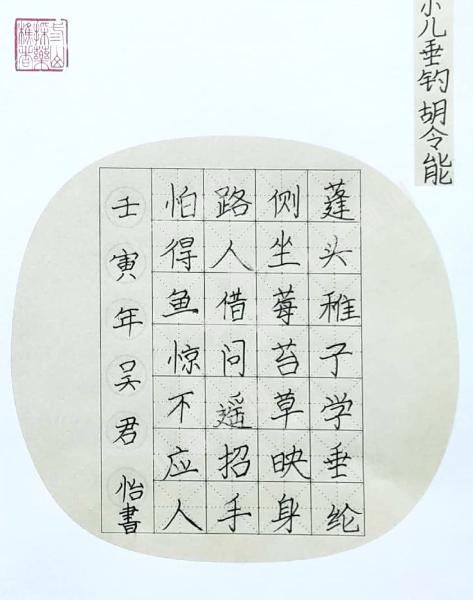 小儿垂钓 胡令能
蓬头稚子学垂纶
侧坐莓苔草映身
路人借问遥招手
怕得鱼惊不应人
壬寅年吴君怡書